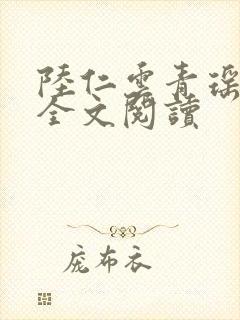 陸仁雲青瑶
全文閱讀
庞布衣